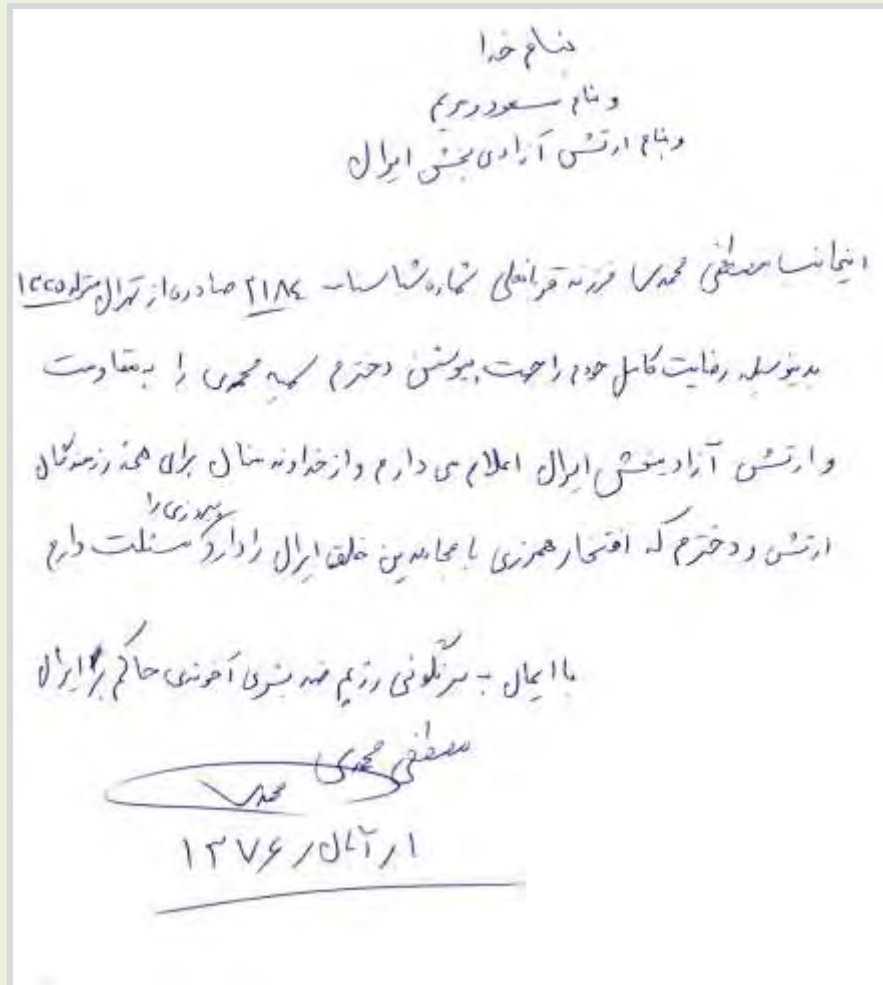 بنام خدا
و بنام مسعود و مریم
و بنام ارتش آزادی بخش ایران
اینجانب مصطفی محمدی فرزند قربانعلی شماره شناسنامه ۲۱۸۴ صادره از تهران متولد ۱۳۳۵
بدینوسیله رضایت کامل خودم را جهت پیوستن دخترم سمیه محمدی را به مقاومت
و ارتش آزادیبخش ایران اعلام می دارم و از خداوند منان برای همه رزمندگان
ارتش و دخترم که افتخار همرزمی با مجاهدین خلق ایران را دارد پیروزی را مسئلت دارم
با ایمان به سرنگونی رژیم ضد بشری آخوندی حاکم بر ایران
مصطفی محمدی
محمدی
۱ ر آبان ر ۱۳۷۶